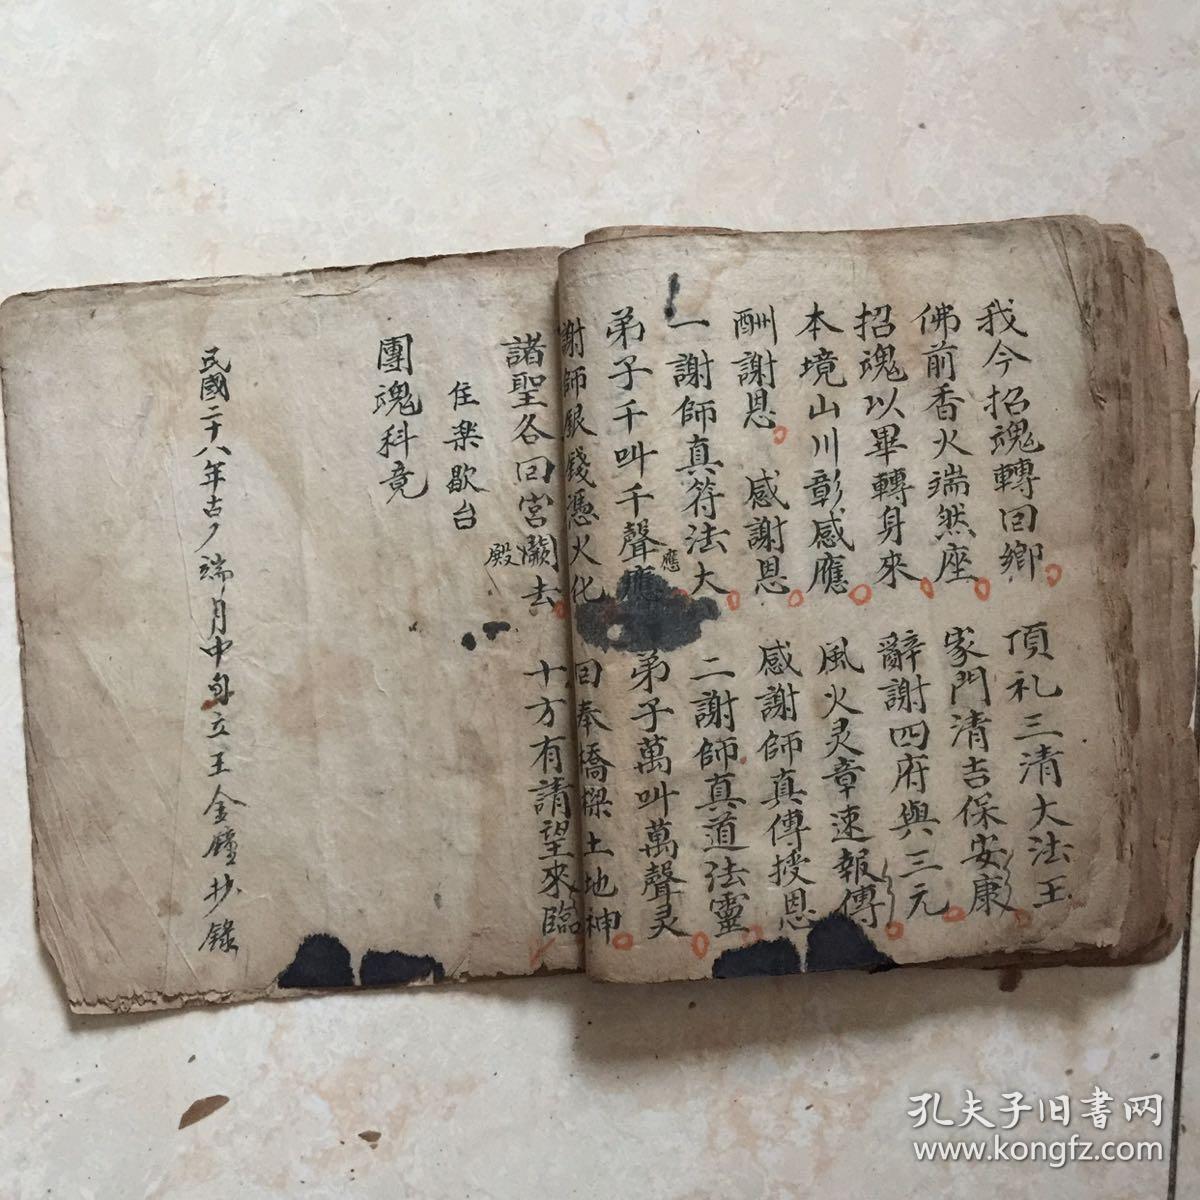 我今招魂轉回鄉 頂礼三清大法王
佛前香火端然座 家門清吉保安康
招魂以畢轉身來 辭謝四府與三元
本境山川彰感應 風火灵章速報傳
酬謝恩 感謝恩 感謝師真傳授恩
一謝師真符法大 二謝師真道法靈
弟子千叫千聲應 弟子萬叫萬聲灵
應
謝師銀錢憑火化 回奉橋樑土地神
諸聖各回宮闕去 十方有請望來臨
殿
住樂歇台
團魂科竟
民國二十八年古 端月中旬立王金 抄錄
孔夫子旧書网
www.kongfz.com